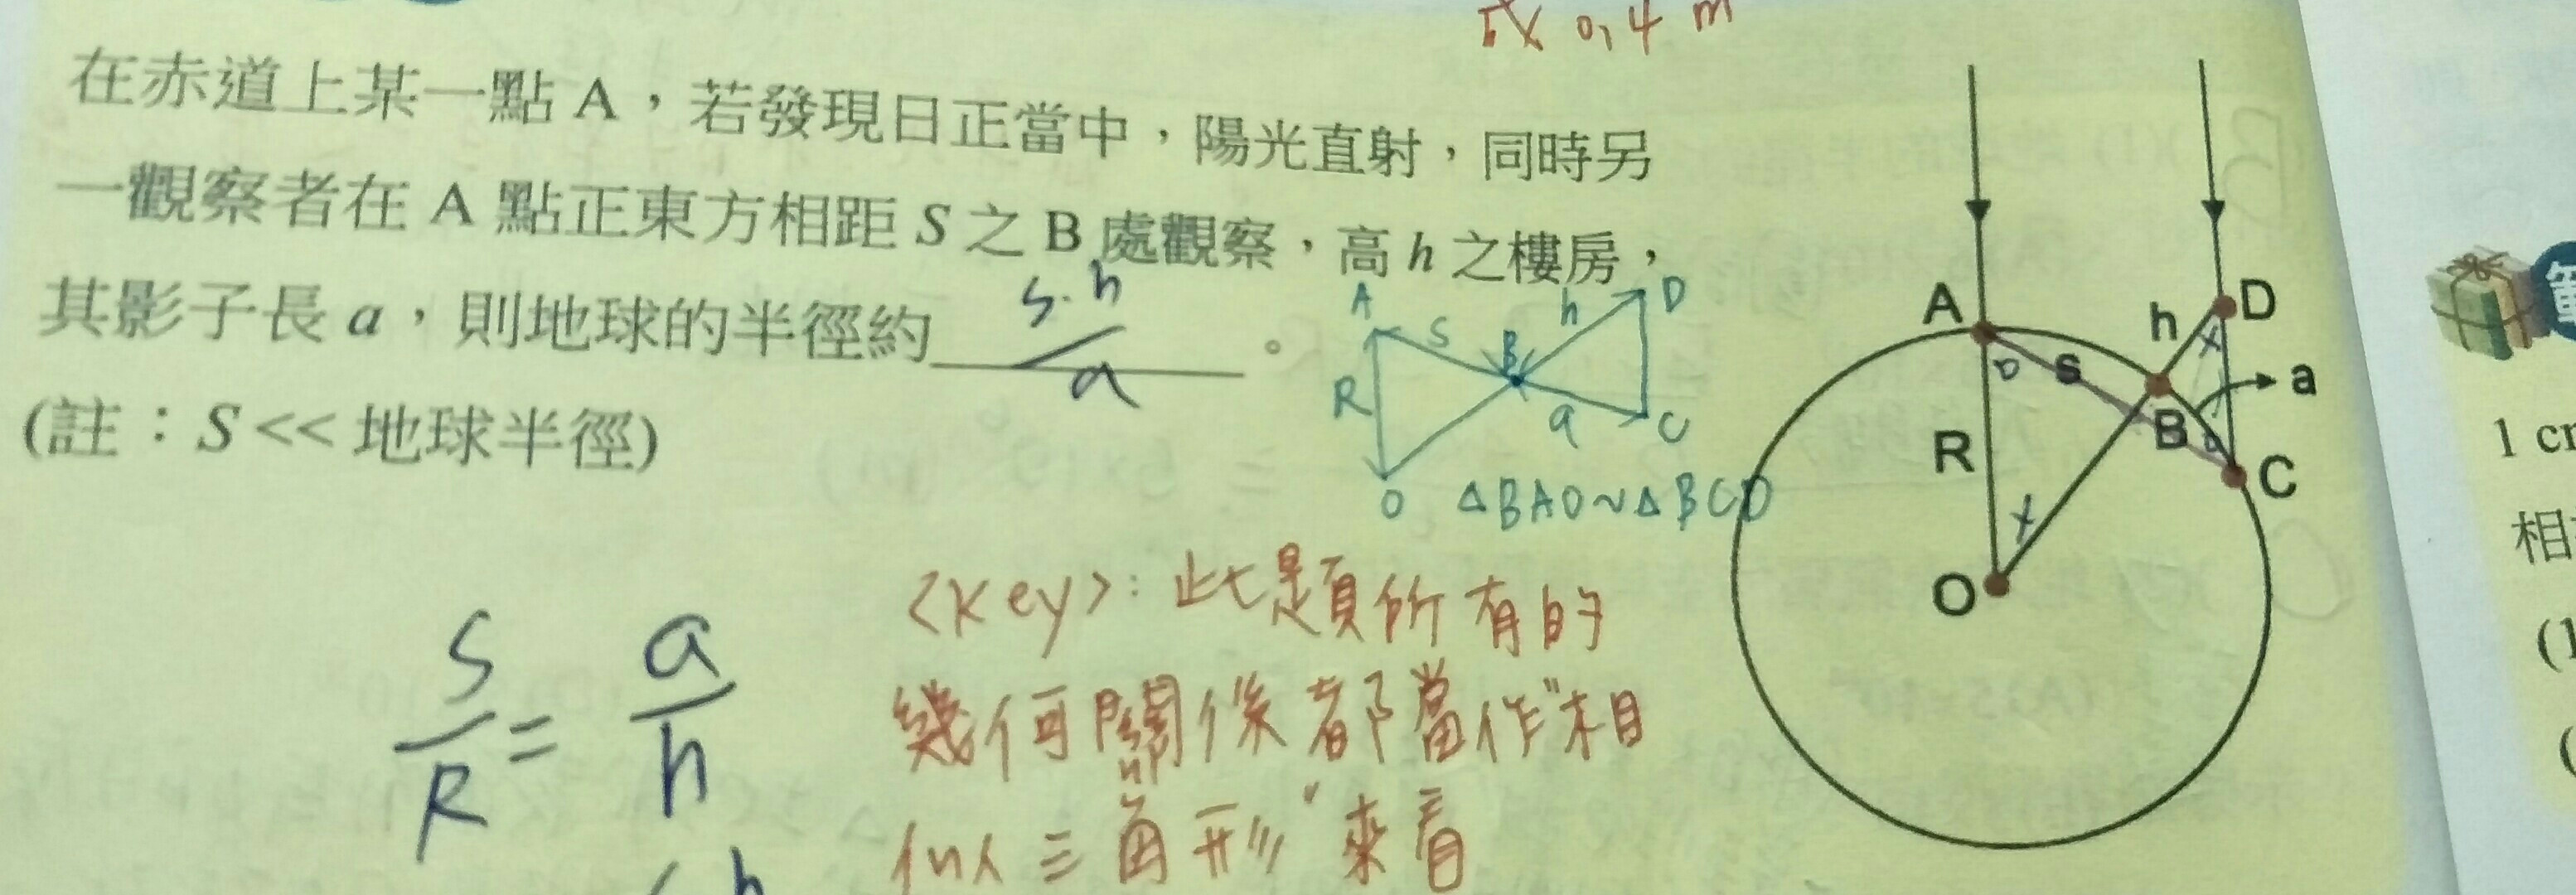 或 0.4 m
在赤道上某一點 A，若發現日正當中，陽光直射，同時另
一觀察者在 A 點正東方相距 S 之 B 處觀察，高 h 之樓房，
其影子長 a，則地球的半徑約 S·h/a 。
(註：S << 地球半徑)
A S B h D
R a C
O △BAO~△BCD
S/R = a/h
<Key>：此題所有的
幾何關係都當作"相
似三角形"來看
h
A
h D
S
a
B
R
C
O
1 cm
相
(1
(